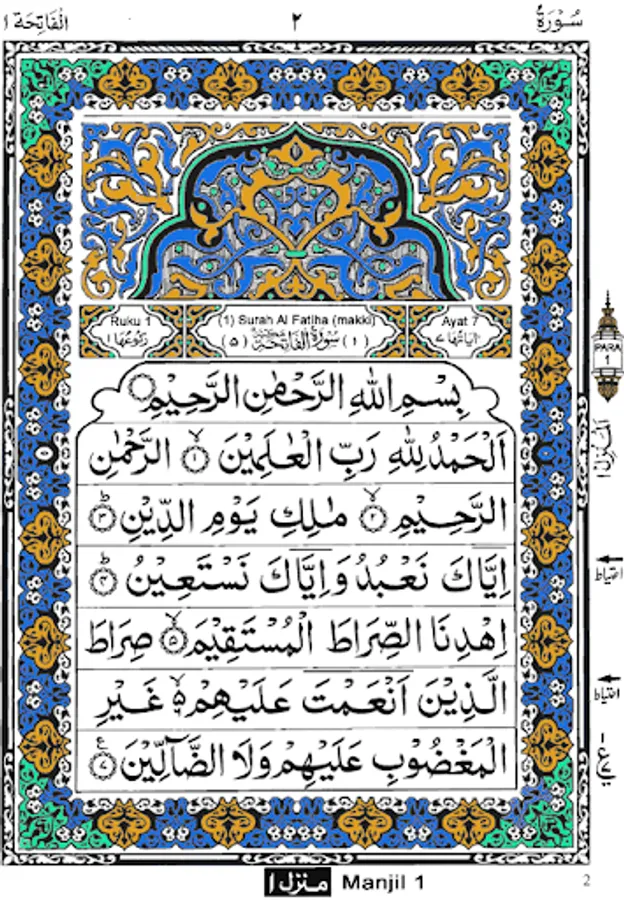 سُوْرَةُ ٢ اَلْفَاتِحَة ١
Ruku 1 (1) Surah Al Fatiha (makki) Ayat 7
اٰيَاتُهَا ٧ (١) سُوْرَةُ الْفَاتِحَةِ مَكِّيَّةٌ (٥) رُكُوْعُهَا ١
بِسْمِ اللّٰهِ الرَّحْمٰنِ الرَّحِيْمِ
اَلْحَمْدُ لِلّٰهِ رَبِّ الْعٰلَمِيْنَ ۙ﴿١﴾ الرَّحْمٰنِ
الرَّحِيْمِ ۙ﴿٢﴾ مٰلِكِ يَوْمِ الدِّيْنِ ﴿٣﴾
اِيَّاكَ نَعْبُدُ وَاِيَّاكَ نَسْتَعِيْنُ ﴿٤﴾
اِهْدِنَا الصِّرَاطَ الْمُسْتَقِيْمَ ۙ﴿٥﴾ صِرَاطَ
الَّذِيْنَ اَنْعَمْتَ عَلَيْهِمْ ۙ۬ غَيْرِ
الْمَغْضُوْبِ عَلَيْهِمْ وَلَا الضَّآلِّيْنَ ﴿٧﴾
PARA
1
اَلْمَنْزِل ١
احتیاط
احتیاط
منزل ١ Manjil 1
2